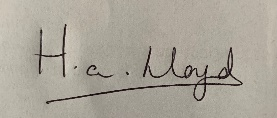 H.a. Lloyd